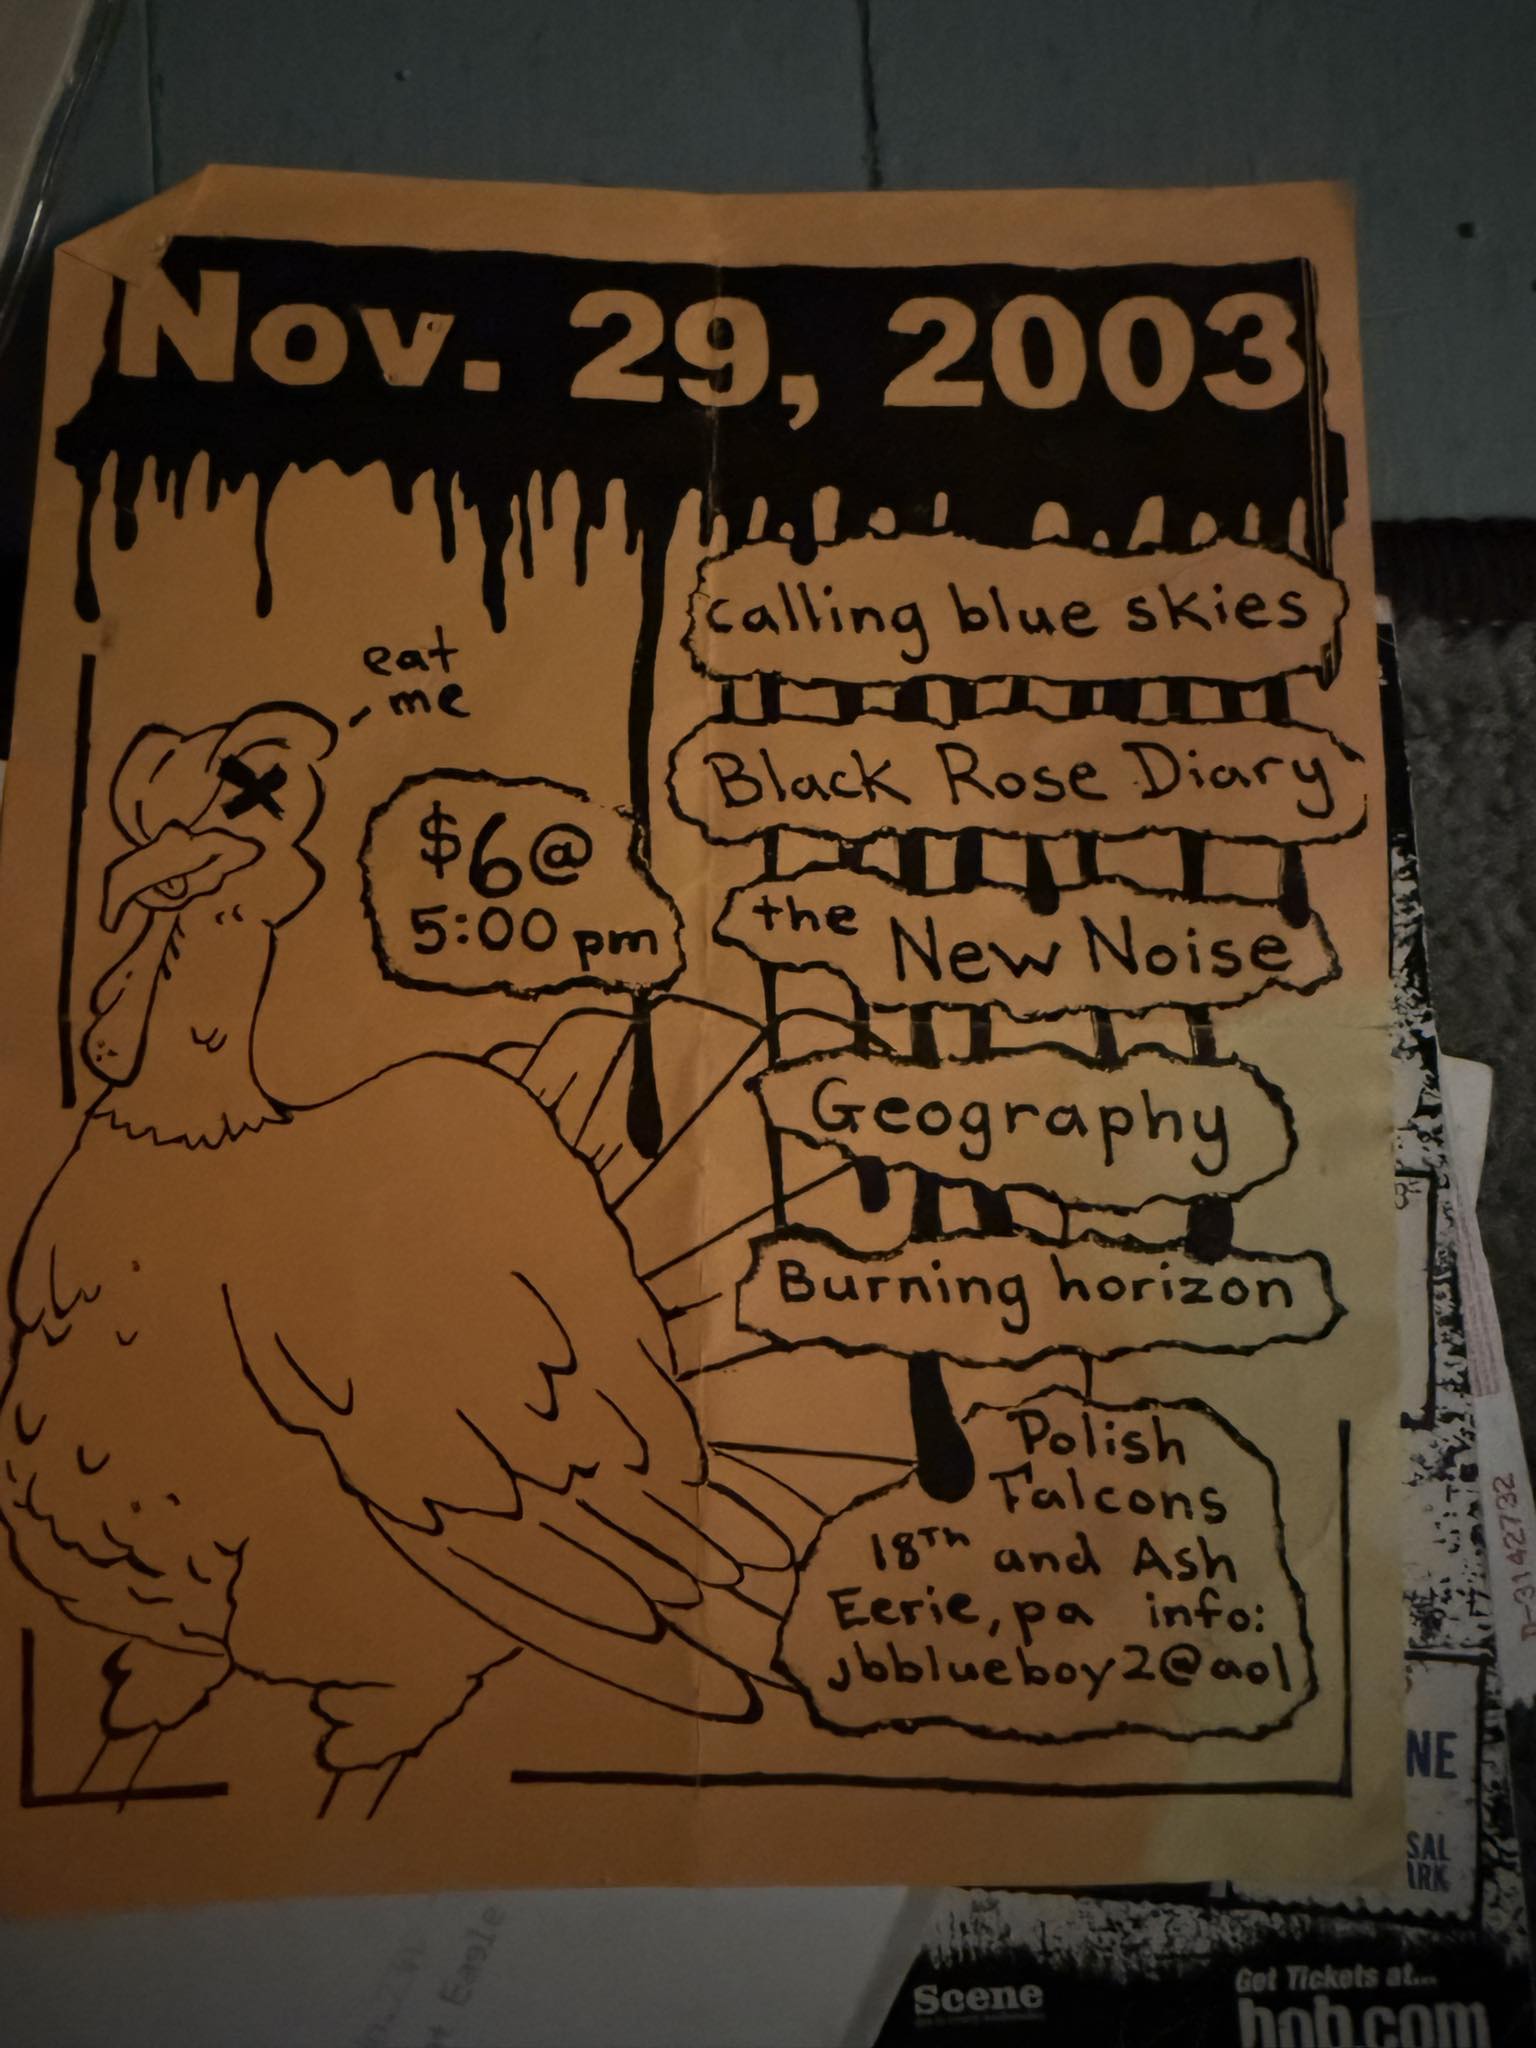 Nov. 29, 2003
calling blue skies
eat
me
Black Rose Diary
$6@
5:00 pm
the New Noise
Geography
Burning horizon
Polish
Falcons
18TH and Ash
Eerie, pa info:
jbblueboy2@aol
D-3142732
NE
SAL
ARK
Eagle
Scene
Get Tickets at...
bob.com